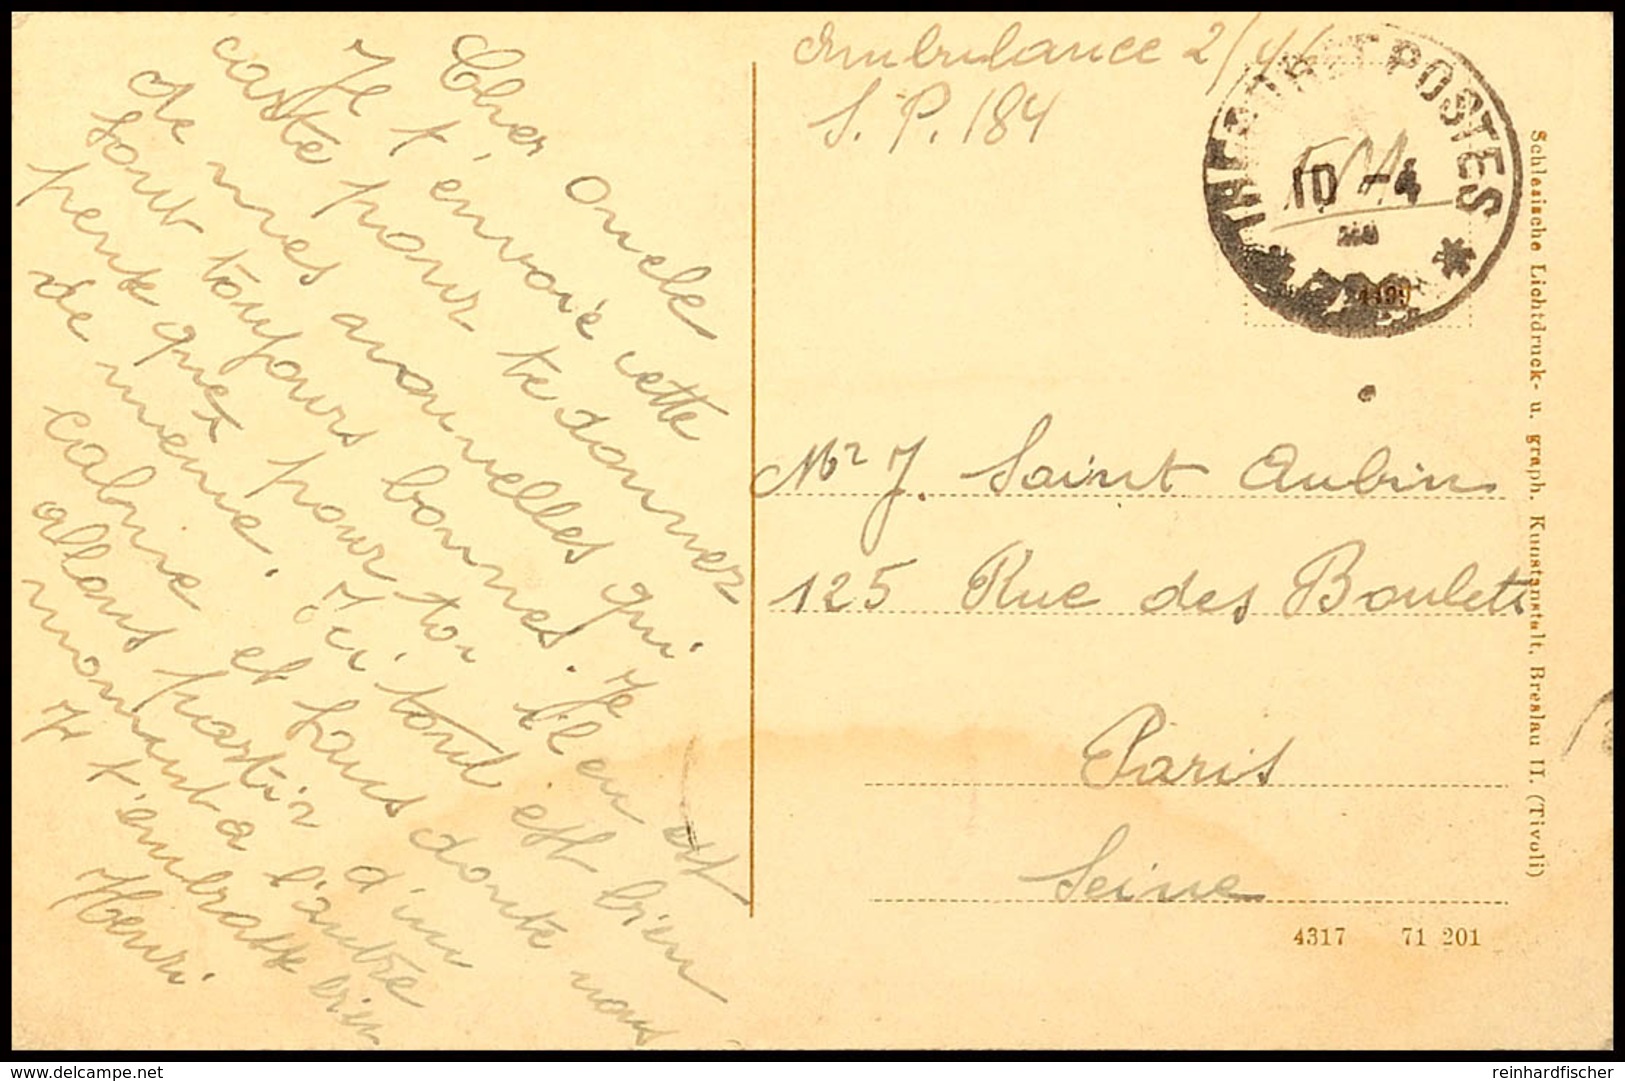 Cher Oncle
Je t'envoie cette
carte pour te donner
de mes nouvelles qui
sont toujours bonnes. Je
pense que pour toi il en est
de même. Ici tout est bien
calme et sans doute nous
allons partir d'un
moment a l'autre
Je t'embrasse bien
Henri
Ambulance 2/44
S. P. 184
TRESOR ET POSTES
10 -4
Mr J. Saint Aubin
125 Rue des Boulets
Paris
Seine
4317 71 201
Schlesische Lichtdruck- u. graph. Kunstanstalt, Breslau II. (Tivoli)
www.delcampe.net
reinhardfischer